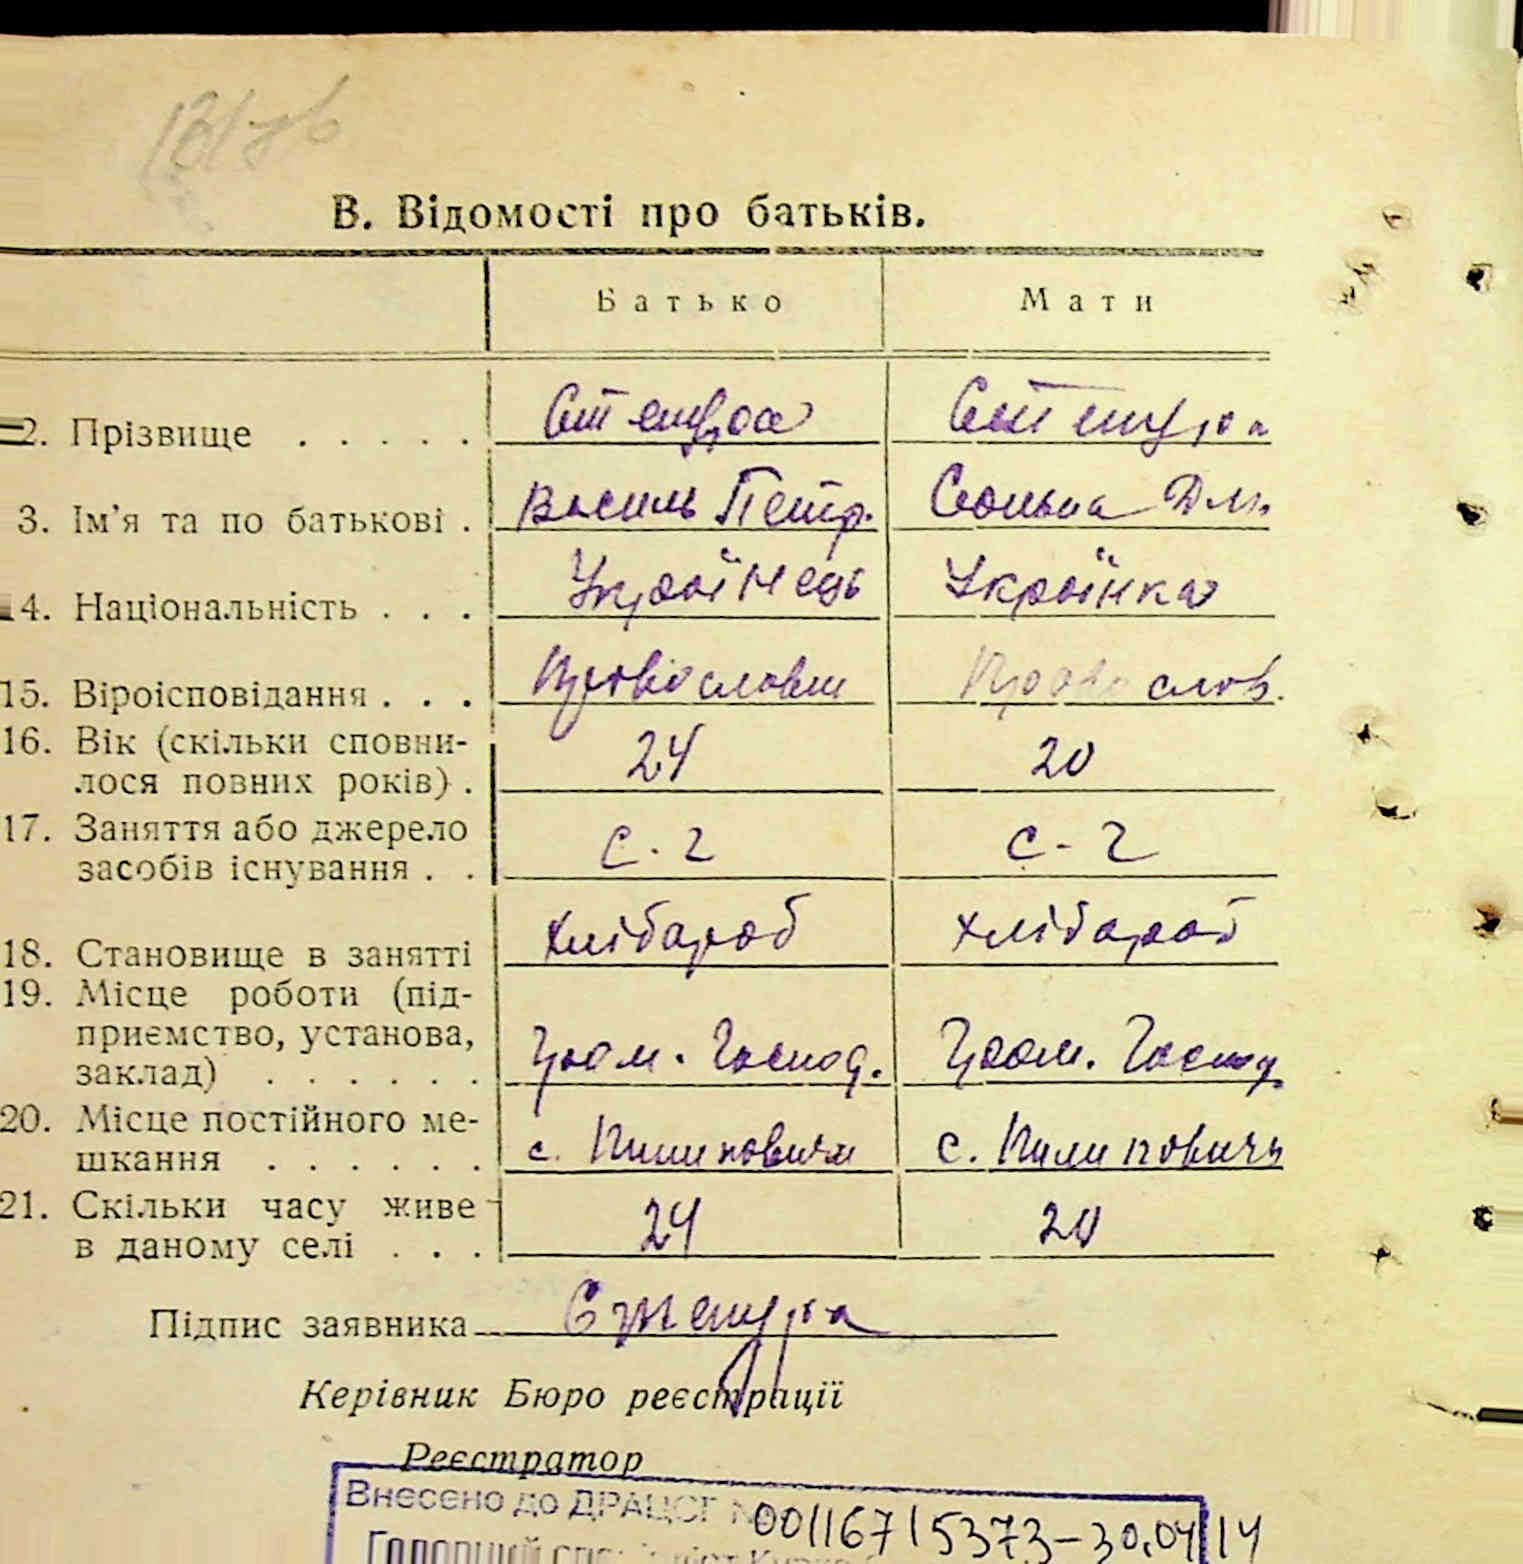 В. Відомості про батьків.
Батько Мати
2. Прізвище . . . . . Стешура Стешура
3. Ім'я та по батькові . Василь Петр. Дм.
14. Національність . . . Українець Українка
15. Віроісповідання . . . Православн Правослов.
16. Вік (скільки сповни-
лося повних років) . 24 20
17. Заняття або джерело
засобів існування . . с-г с-г
18. Становище в занятті хлібароб хлібароб
19. Місце роботи (під-
приємство, установа,
заклад) . . . . . . Гром. Господ. Гром. Господ.
20. Місце постійного ме-
шкання . . . . . . с. Пилиповичи с. Пилиповичи
21. Скільки часу живе
в даному селі . . . 24 20
Підпис заявника Стешура
Керівник Бюро реєстрації
Реєстратор
Внесено до ДРАЦСГ № 00116715373-30.04.14